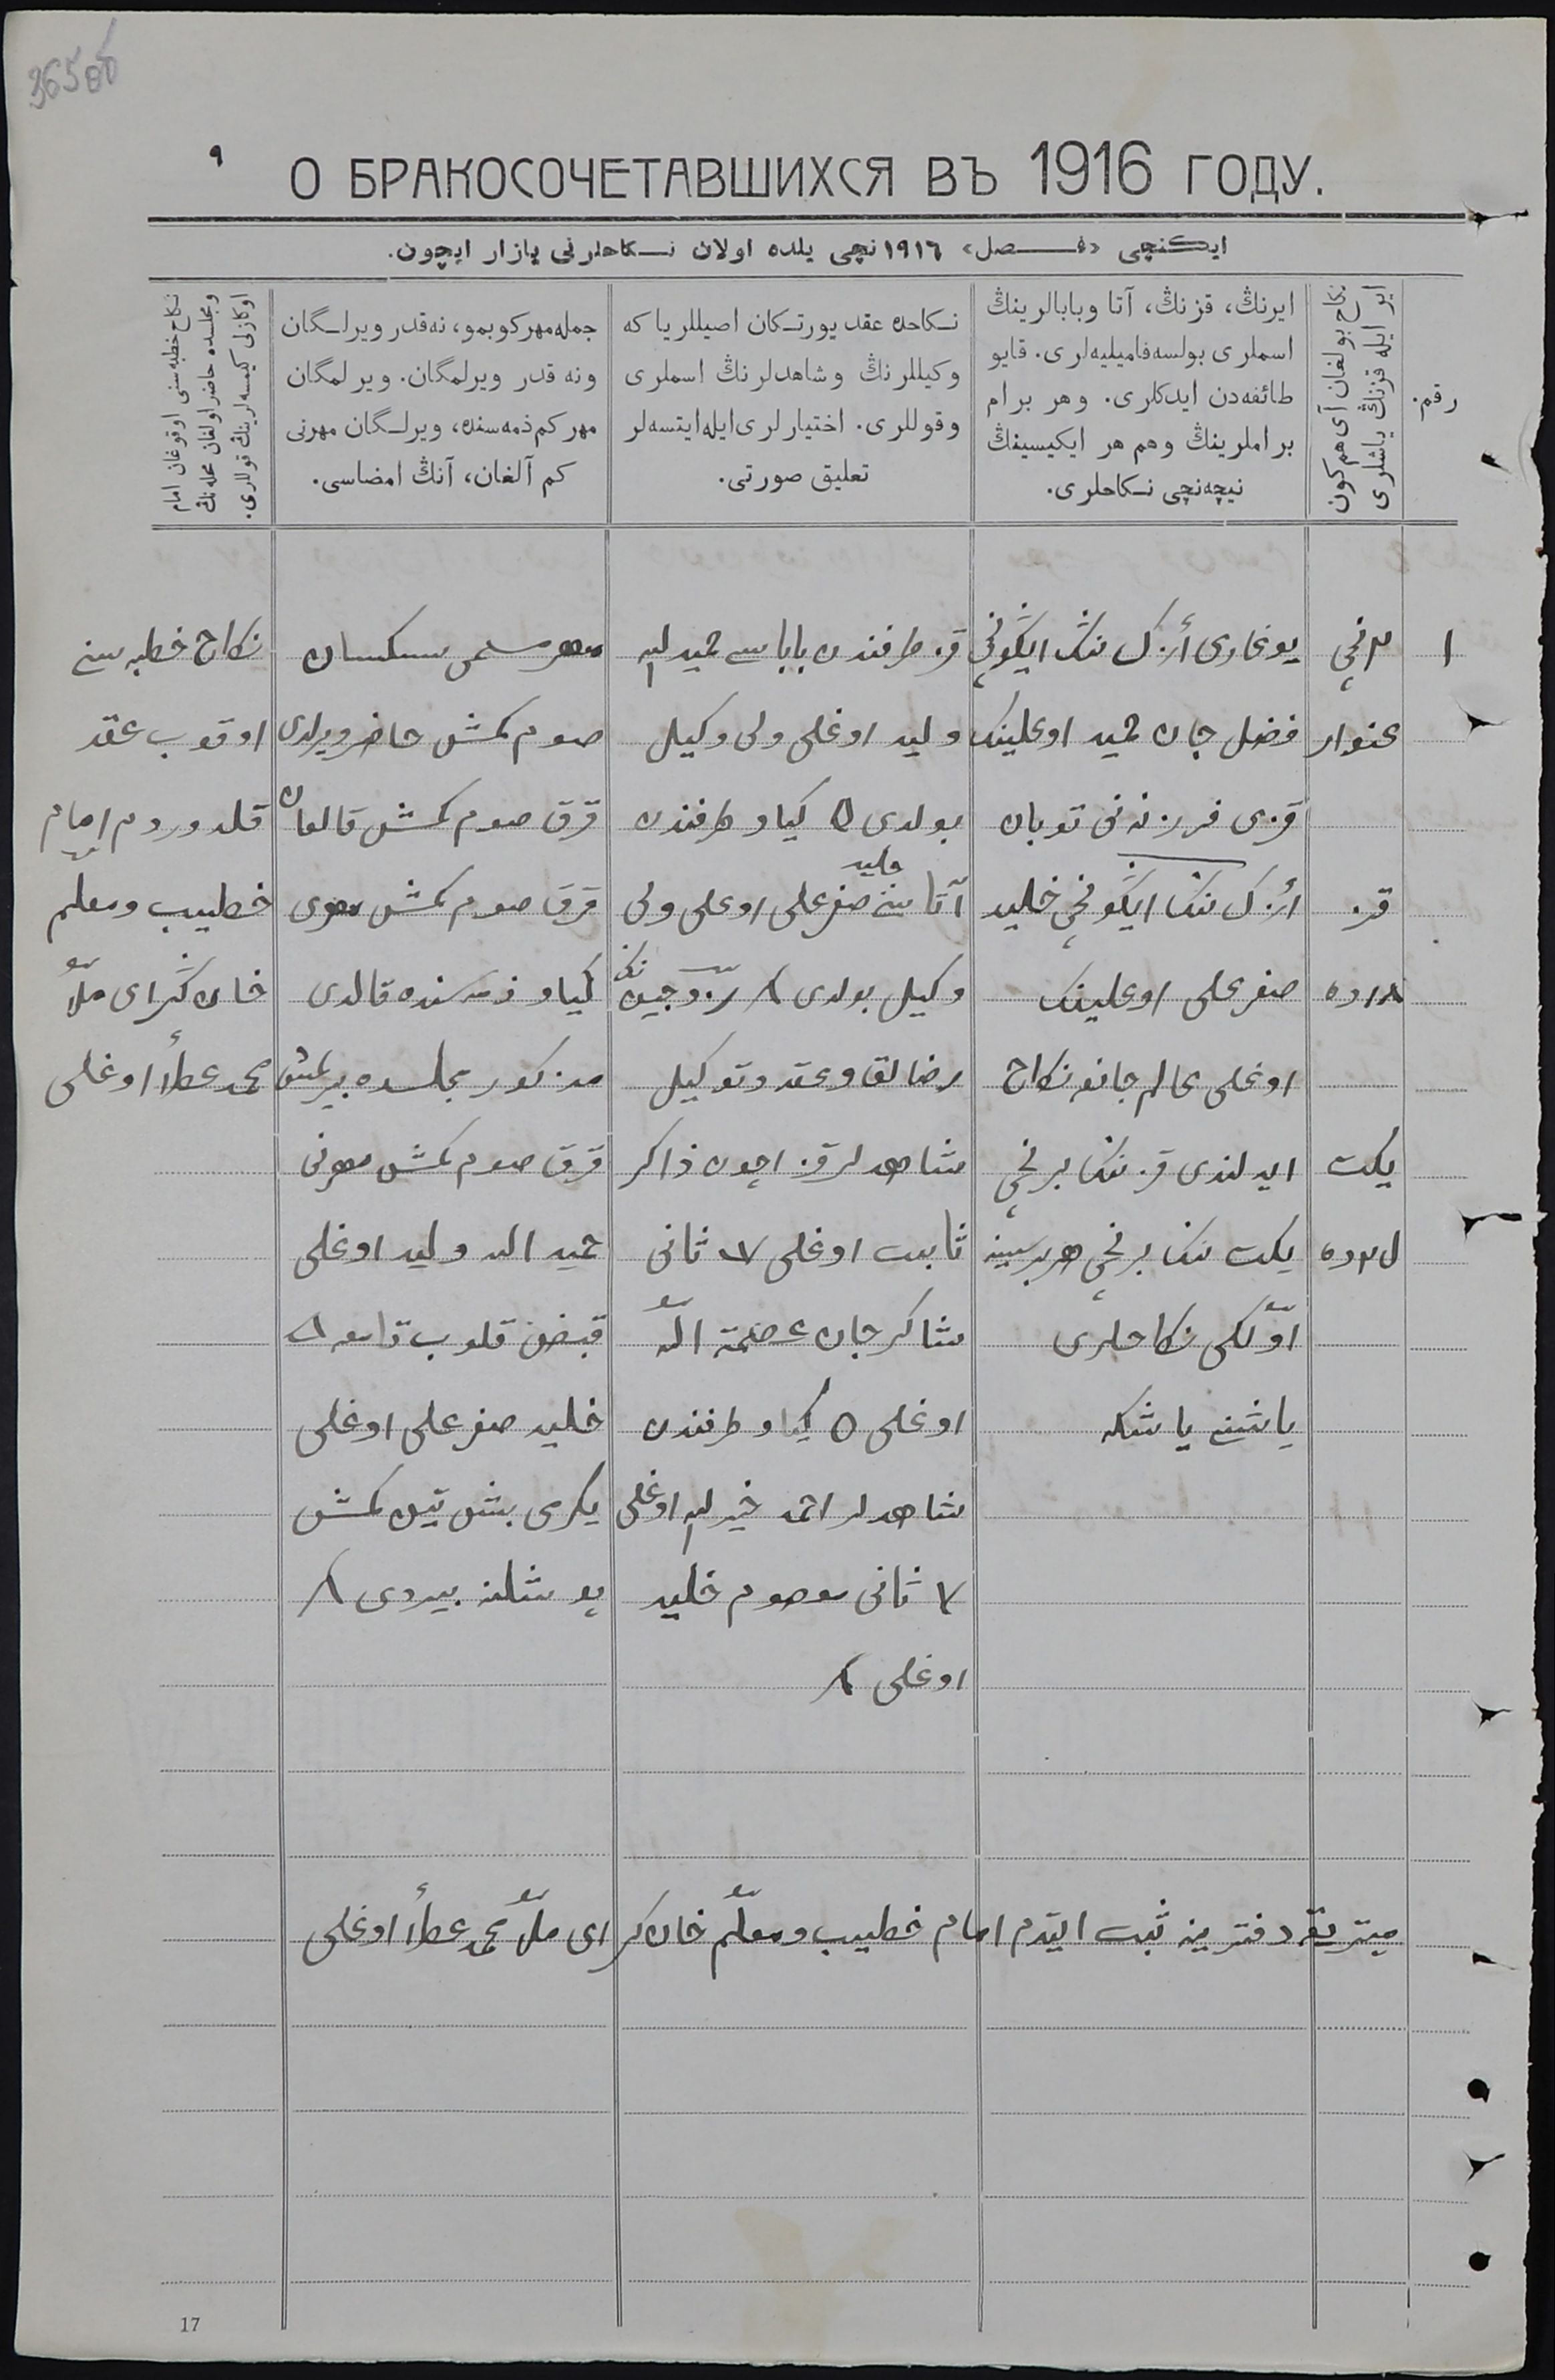 365об
٩
О БРАКОСОЧЕТАВШИХСЯ ВЪ 1916 ГОДУ.
ایکنچی «فصل» ١٩١٦نچی یلده اولان نکاحلرنی یازار ایچون.
رقم.
نکاح بولغان آی هم کون
ایر ایله قزنڭ یاشلری
ایرنڭ، قزنڭ، آتا وبابالرینڭ
اسملری بولسه فامیلیه‌لری. قایو
طائفه‌دن ایدکلری. وهر برام
براملرینڭ وهم هر ایکیسینڭ
نیچه‌نچی نکاحلری.
نکاحده عقد یورتکان اصیللر یا که
وکیللرنڭ وشاهدلرنڭ اسملری
وقوللری. اختیارلری ایله ایتسه‌لر
تعلیق صورتی.
جمله مهر کوبمو، نه‌قدر ویرلگان
ونه قدر ویرلمگان. ویرلمگان
مهر کم ذمه‌سنده، ویرلگان مهرنی
کم آلغان، آنڭ امضاسی.
نکاح خطبه سنی اوقوغان امام
ومجلسده حاضر اولغان محله‌نڭ
اوکازلی کیمسه‌لرینڭ قوللری.
١
٣ نچی
عنوار
قز
١٨ ده
یکت
٢٣ ده
یوغاری أزک ننک ایکونچی
فضل جان حمید اوغلینک
قزی فرزنه نی توبان
أزک ننک ایکونچی خلید
صفرعلی اوغلینک
اوغلی عالم جانغه نکاح
ایدلندی قز ننک برنچی
یکت ننک برنچی هر برسینه
اوّلکی نکاحلری
یاشینه یاشکه
قز طرفندن باباسی حمید لله
ولید اوغلی ولی وکیل
بولدی ٥ کیاو طرفندن
آتاسی خلید صفرعلی اوغلی ولی
وکیل بولدی ٨ زوجین ننک
رضالق وعقد وتوکیل
شاهدلر قز اچون ذاکر
ثابت اوغلی ٧ ثانی
شاکرجان عصمة الله
اوغلی ٥ کیاو طرفندن
شاهدلر احمد خیرلله اوغلی
٧ ثانی معصوم خلید
اوغلی ٨
مهر مسمی سکسان
صوم کمش حاضر ویرلدی
قرق صوم کمش قالغان
قرق صوم کمش مهری
کیاو ذمه‌سنده قالدی
مذکور مجلسده بیرلمش
قرق صوم کمش مهرنی
حمید الله ولید اوغلی
قبض قلوب
خلید صفرعلی اوغلی
یکرمی بش تین کمش
پوشلنه بیردی ٨
نکاح خطبه سنی
اوقوب عقد
قلدوردم امام
خطیب ومعلم
خان کرای ملّا
محمد عطأ اوغلی
میتریقه دفترینه ثبت ایتدم امام خطیب ومعلّم خان کرای ملّا محمد عطأ اوغلی
17